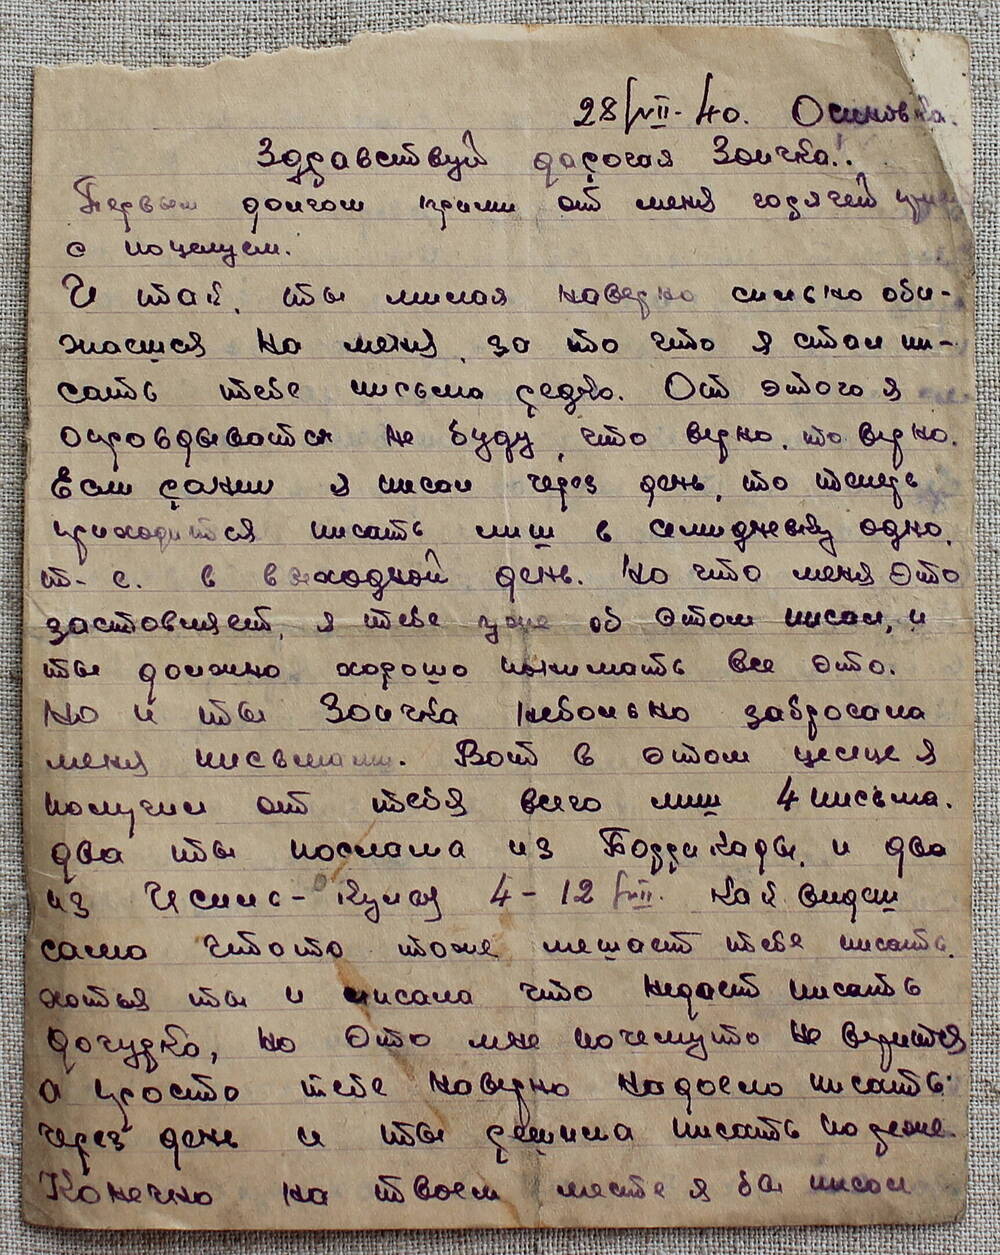 28/VII-40. Осиновка.
Здравствуй дарогая Зоичка!..
Первым долгом прими от меня горячей
с поцелуем.
И так, ты милая наверно сильно оби-
жаешся на меня, за то что я стал пи-
сать тебе письма редко. От этого я
оправдыватся не буду, что верно, то верно.
Если ранши я писал через день, то теперь
приходится писать лиш в семидневку одно,
т-е. в выходной день. Но что меня это
заставляет, я тебе уже об этом писал, и
ты должно хорошо понимать все это.
Но и ты Зоичка небольно забросала
меня письмами. Вот в этом месице я
получил от тебя всего лиш 4 письма.
два ты послала из и два
из 4-12/VII. Как видеш
сама чтото тоже мешает тебе писать,
хотья ты и писала что недает писать
дочурка, но это мне почемуто не верится
а просто тебе наверно надоело писать
через день и ты решила писать пореже.
Конечно на твоем месте я бы писал